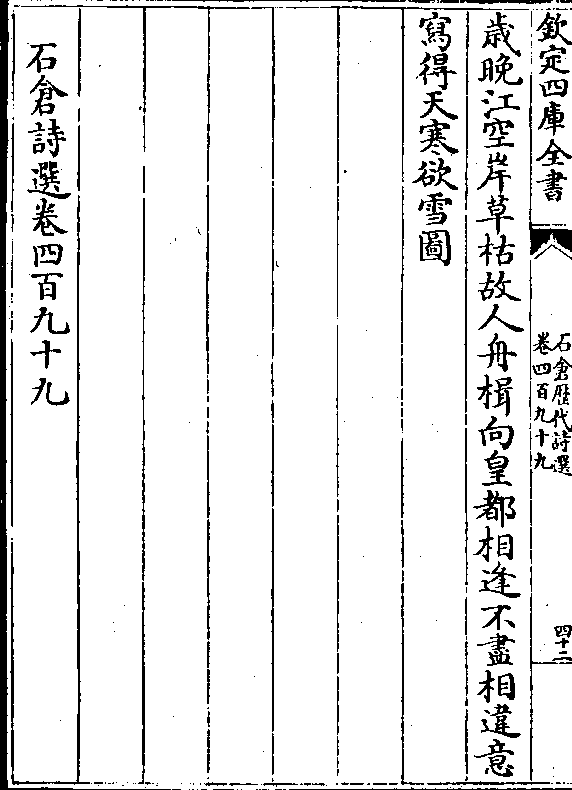 欽定四庫全書
石倉歴代詩選
卷四百九十九
四十二
歳晚江空岸草枯故人舟楫向皇都相逢不盡相違意
寫得天寒欲雪圖
石倉詩選卷四百九十九